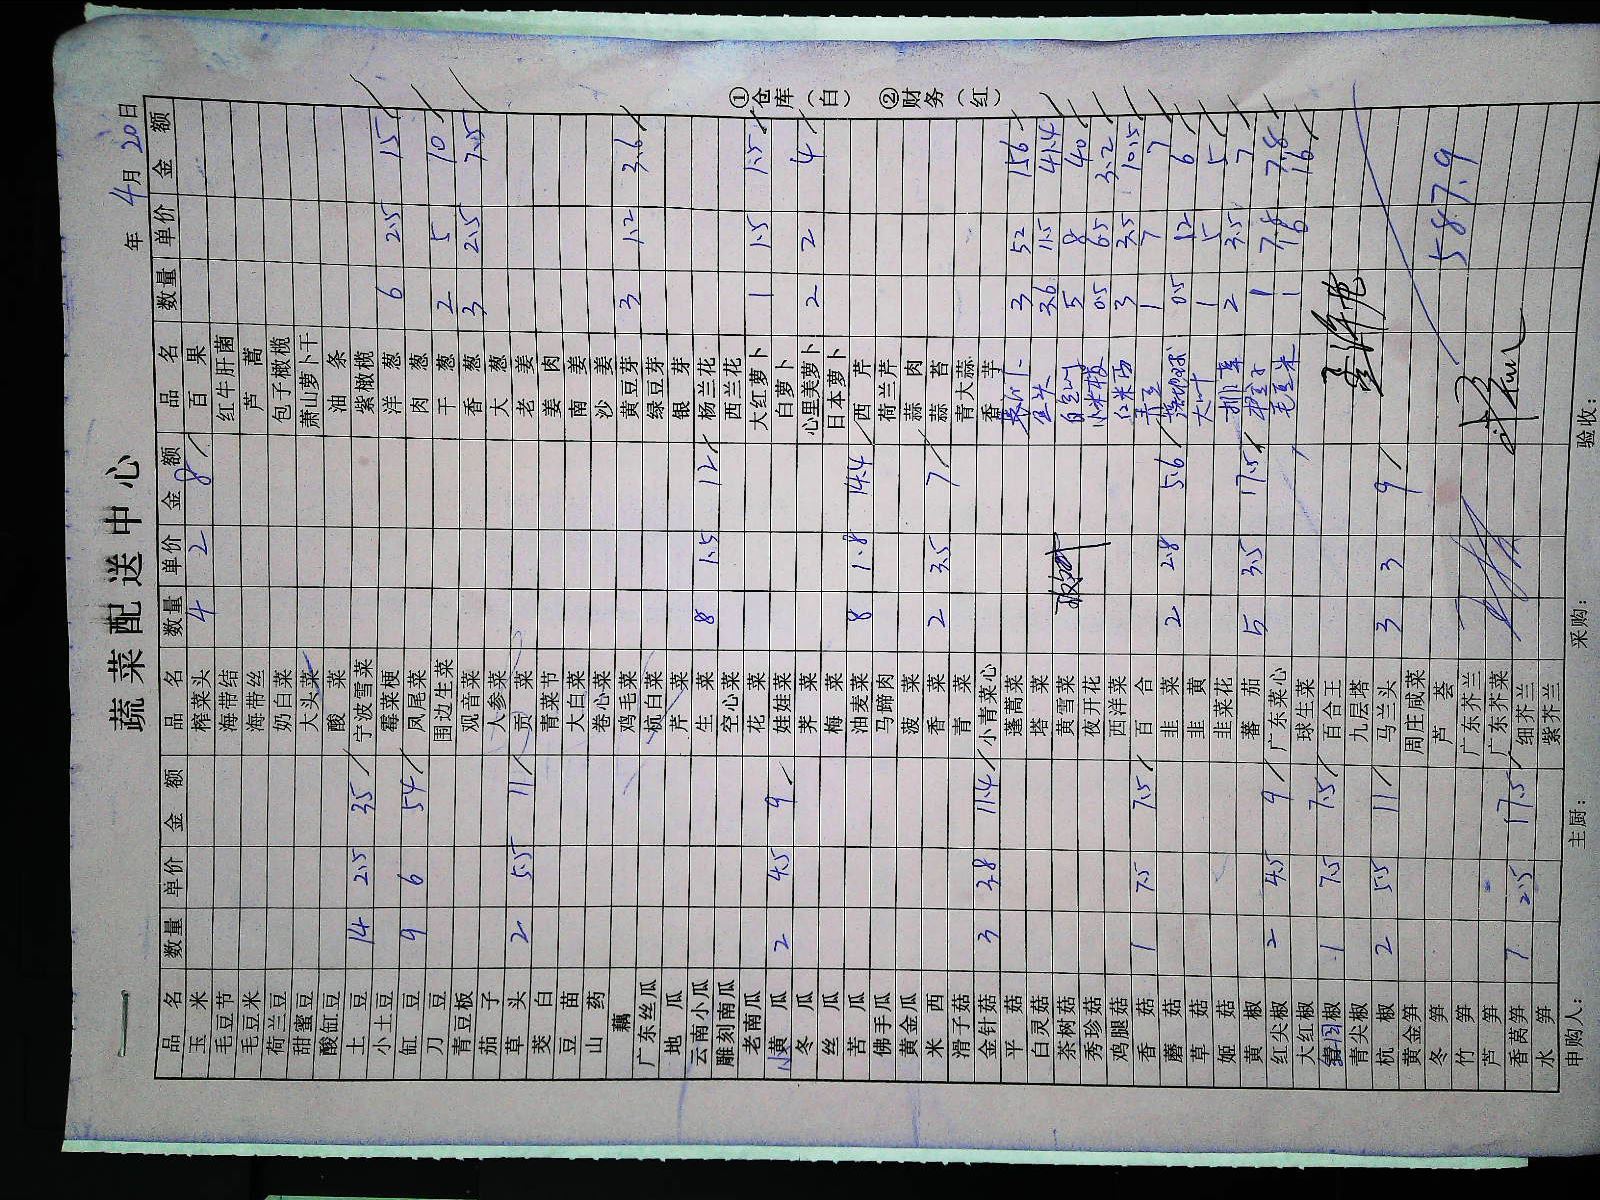 蔬菜配送中心
年 4月 20日
品名 数量 单价 金额 品名 数量 单价 金额 品名 数量 单价 金额
玉米 榨菜头 4 2 8 百果
毛豆节 海带结 红牛肝菌
毛豆米 海带丝 芦蒿
荷兰豆 奶白菜 包子橄榄
甜蜜豆 大头菜 萧山萝卜干
酸缸豆 酸菜 油条
土豆 14 2.5 35 宁波雪菜 紫橄榄
小土豆 霉菜梗 洋葱 6 2.5 15
缸豆 9 6 54 凤尾菜 肉葱
刀豆 围边生菜 干葱 2 5 10
青豆板 观音菜 香葱 3 2.5 7.5
茄子 人参菜 大葱
草头 2 5.5 11 贡菜 老姜
茭白 青菜节 姜肉
豆苗 大白菜 南姜
山药 卷心菜 沙姜
藕 鸡毛菜 黄豆芽 3 1.2 3.6
广东丝瓜 杭白菜 绿豆芽
地瓜 芹菜 银芽
云南小瓜 生菜 8 1.5 12 杨兰花
雕刻南瓜 空心菜 西兰花
老南瓜 花菜 大红萝卜 1 1.5 1.5
小黄瓜 2 4.5 9 娃娃菜 白萝卜
冬瓜 荠菜 心里美萝卜 2 2 4
丝瓜 梅菜 日本萝卜
苦瓜 油麦菜 8 1.8 14.4 西芹
佛手瓜 马蹄肉 荷兰芹
黄金瓜 菠菜 蒜肉
米西 香菜 2 3.5 7 蒜苔
滑子菇 青菜 青大蒜
金针菇 3 3.8 11.4 小青菜心 香芋
平菇 蓬蒿菜 3 52 156
白灵菇 塔菜 3.6 11.5 41.4
茶树菇 黄雪菜 5 8 40
秀珍菇 夜开花 小米椒 0.5 6.5 3.2
鸡腿菇 西洋菜 红米苋 3 3.5 10.5
香菇 1 7.5 7.5 百合 1 7 7
蘑菇 韭菜 2 2.8 5.6 0.5 12 6
草菇 韭黄 大叶 1 5 5
姬菇 韭菜花 2 3.5 7
黄椒 蕃茄 5 3.5 17.5 1 7.8 7.8
红尖椒 2 4.5 9 广东菜心 毛豆米 1 16 16
大红椒 球生菜
圆椒 1 7.5 7.5 百合王
青尖椒 九层塔
杭椒 2 5.5 11 马兰头 3 3 9
黄金笋 周庄咸菜
冬笋 芦荟 587.9
竹笋 广东芥兰
芦笋 广东芥菜
香莴笋 7 2.5 17.5 细芥兰
水笋 紫芥兰
申购人： 主厨： 采购： 验收：
①仓库（白） ②财务（红）